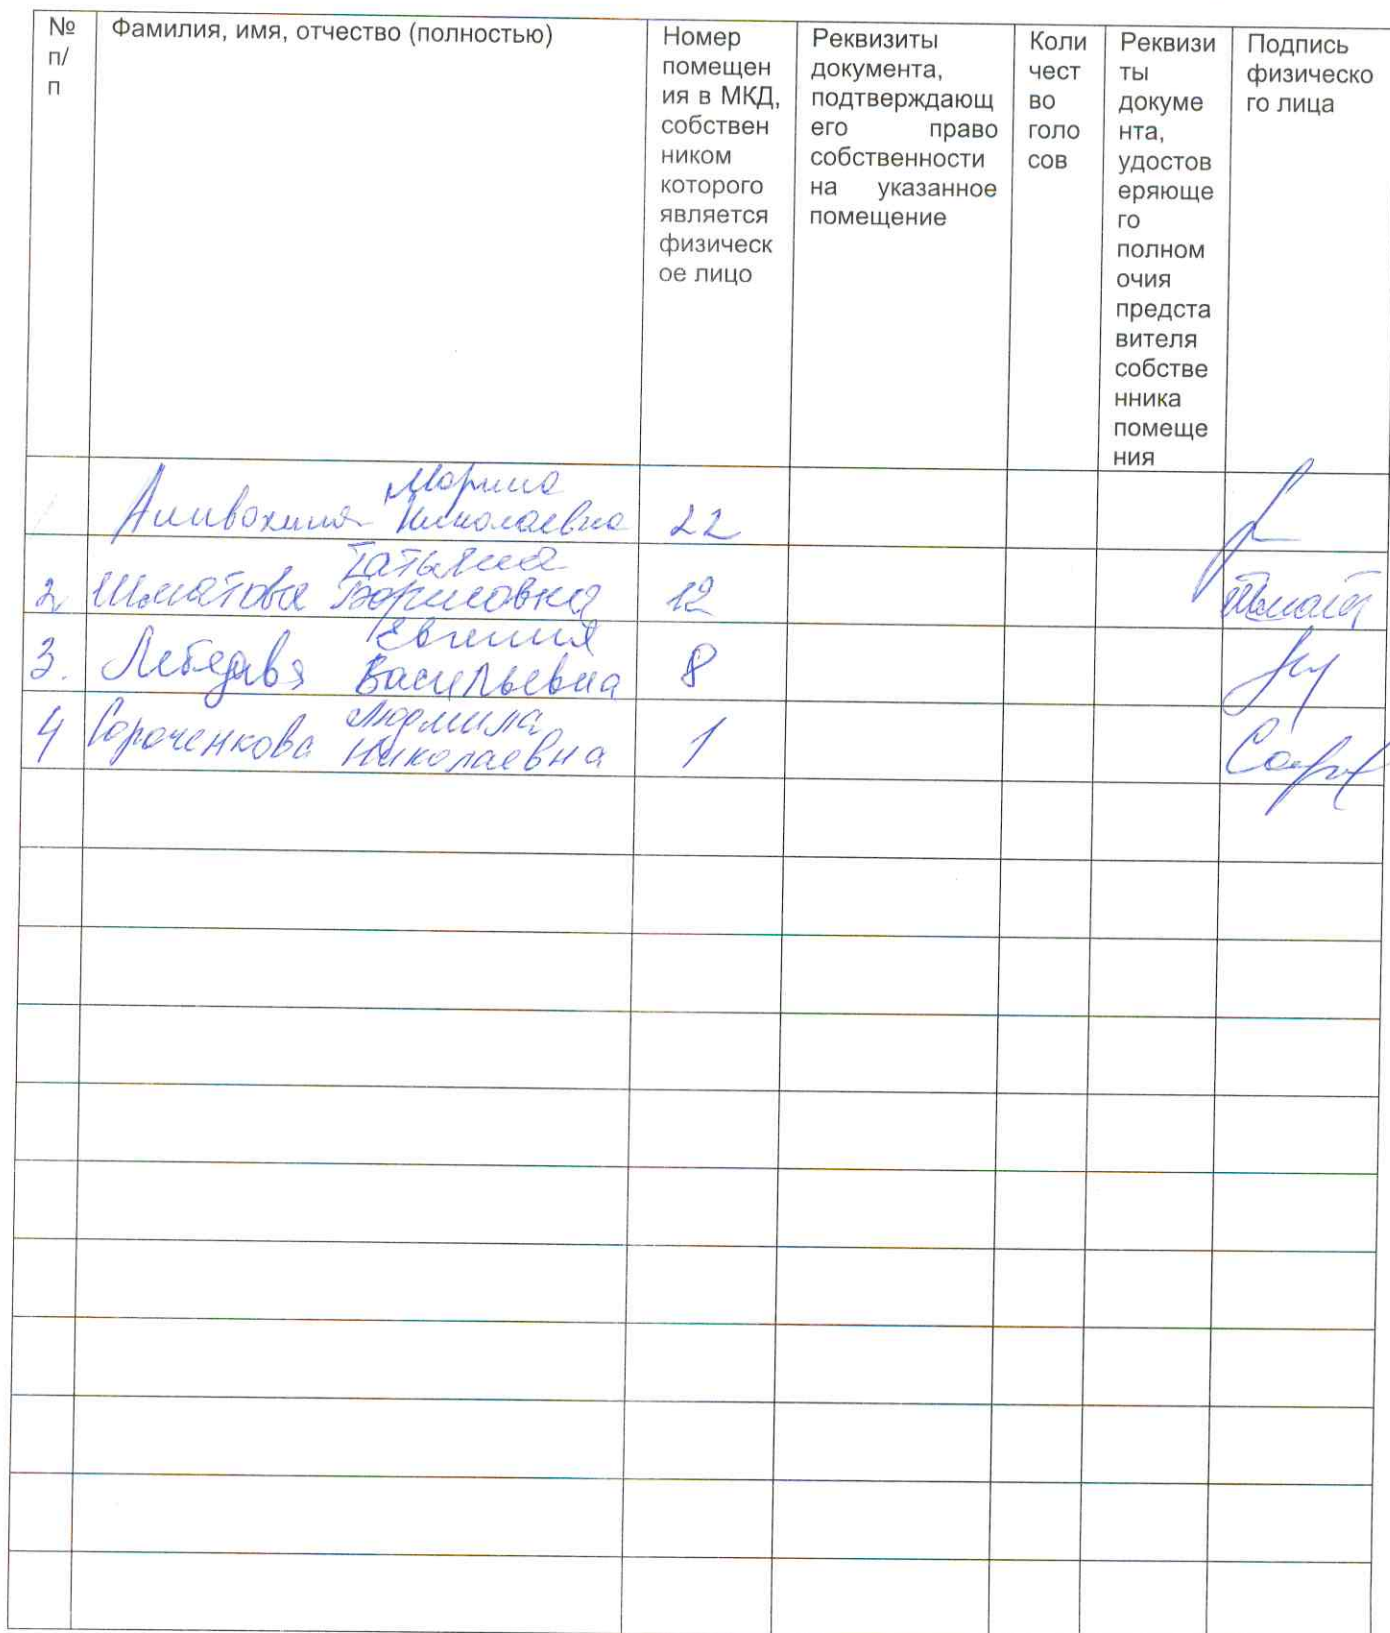 №
п/
п
Фамилия, имя, отчество (полностью)
Номер
помещен
ия в МКД,
собствен
ником
которого
является
физическ
ое лицо
Реквизиты
документа,
подтверждающ
его право
собственности
на указанное
помещение
Коли
чест
во
голо
сов
Реквизи
ты
докуме
нта,
удостов
еряюще
го
полном
очия
предста
вителя
собстве
нника
помеще
ния
Подпись
физическо
го лица
Марина
Николаевна 22
Татьяна
2 Шматова Борисовна 12
Евгения
3. Лебедева Васильевна 8
Людмила
4 Сороченкова Николаевна 1